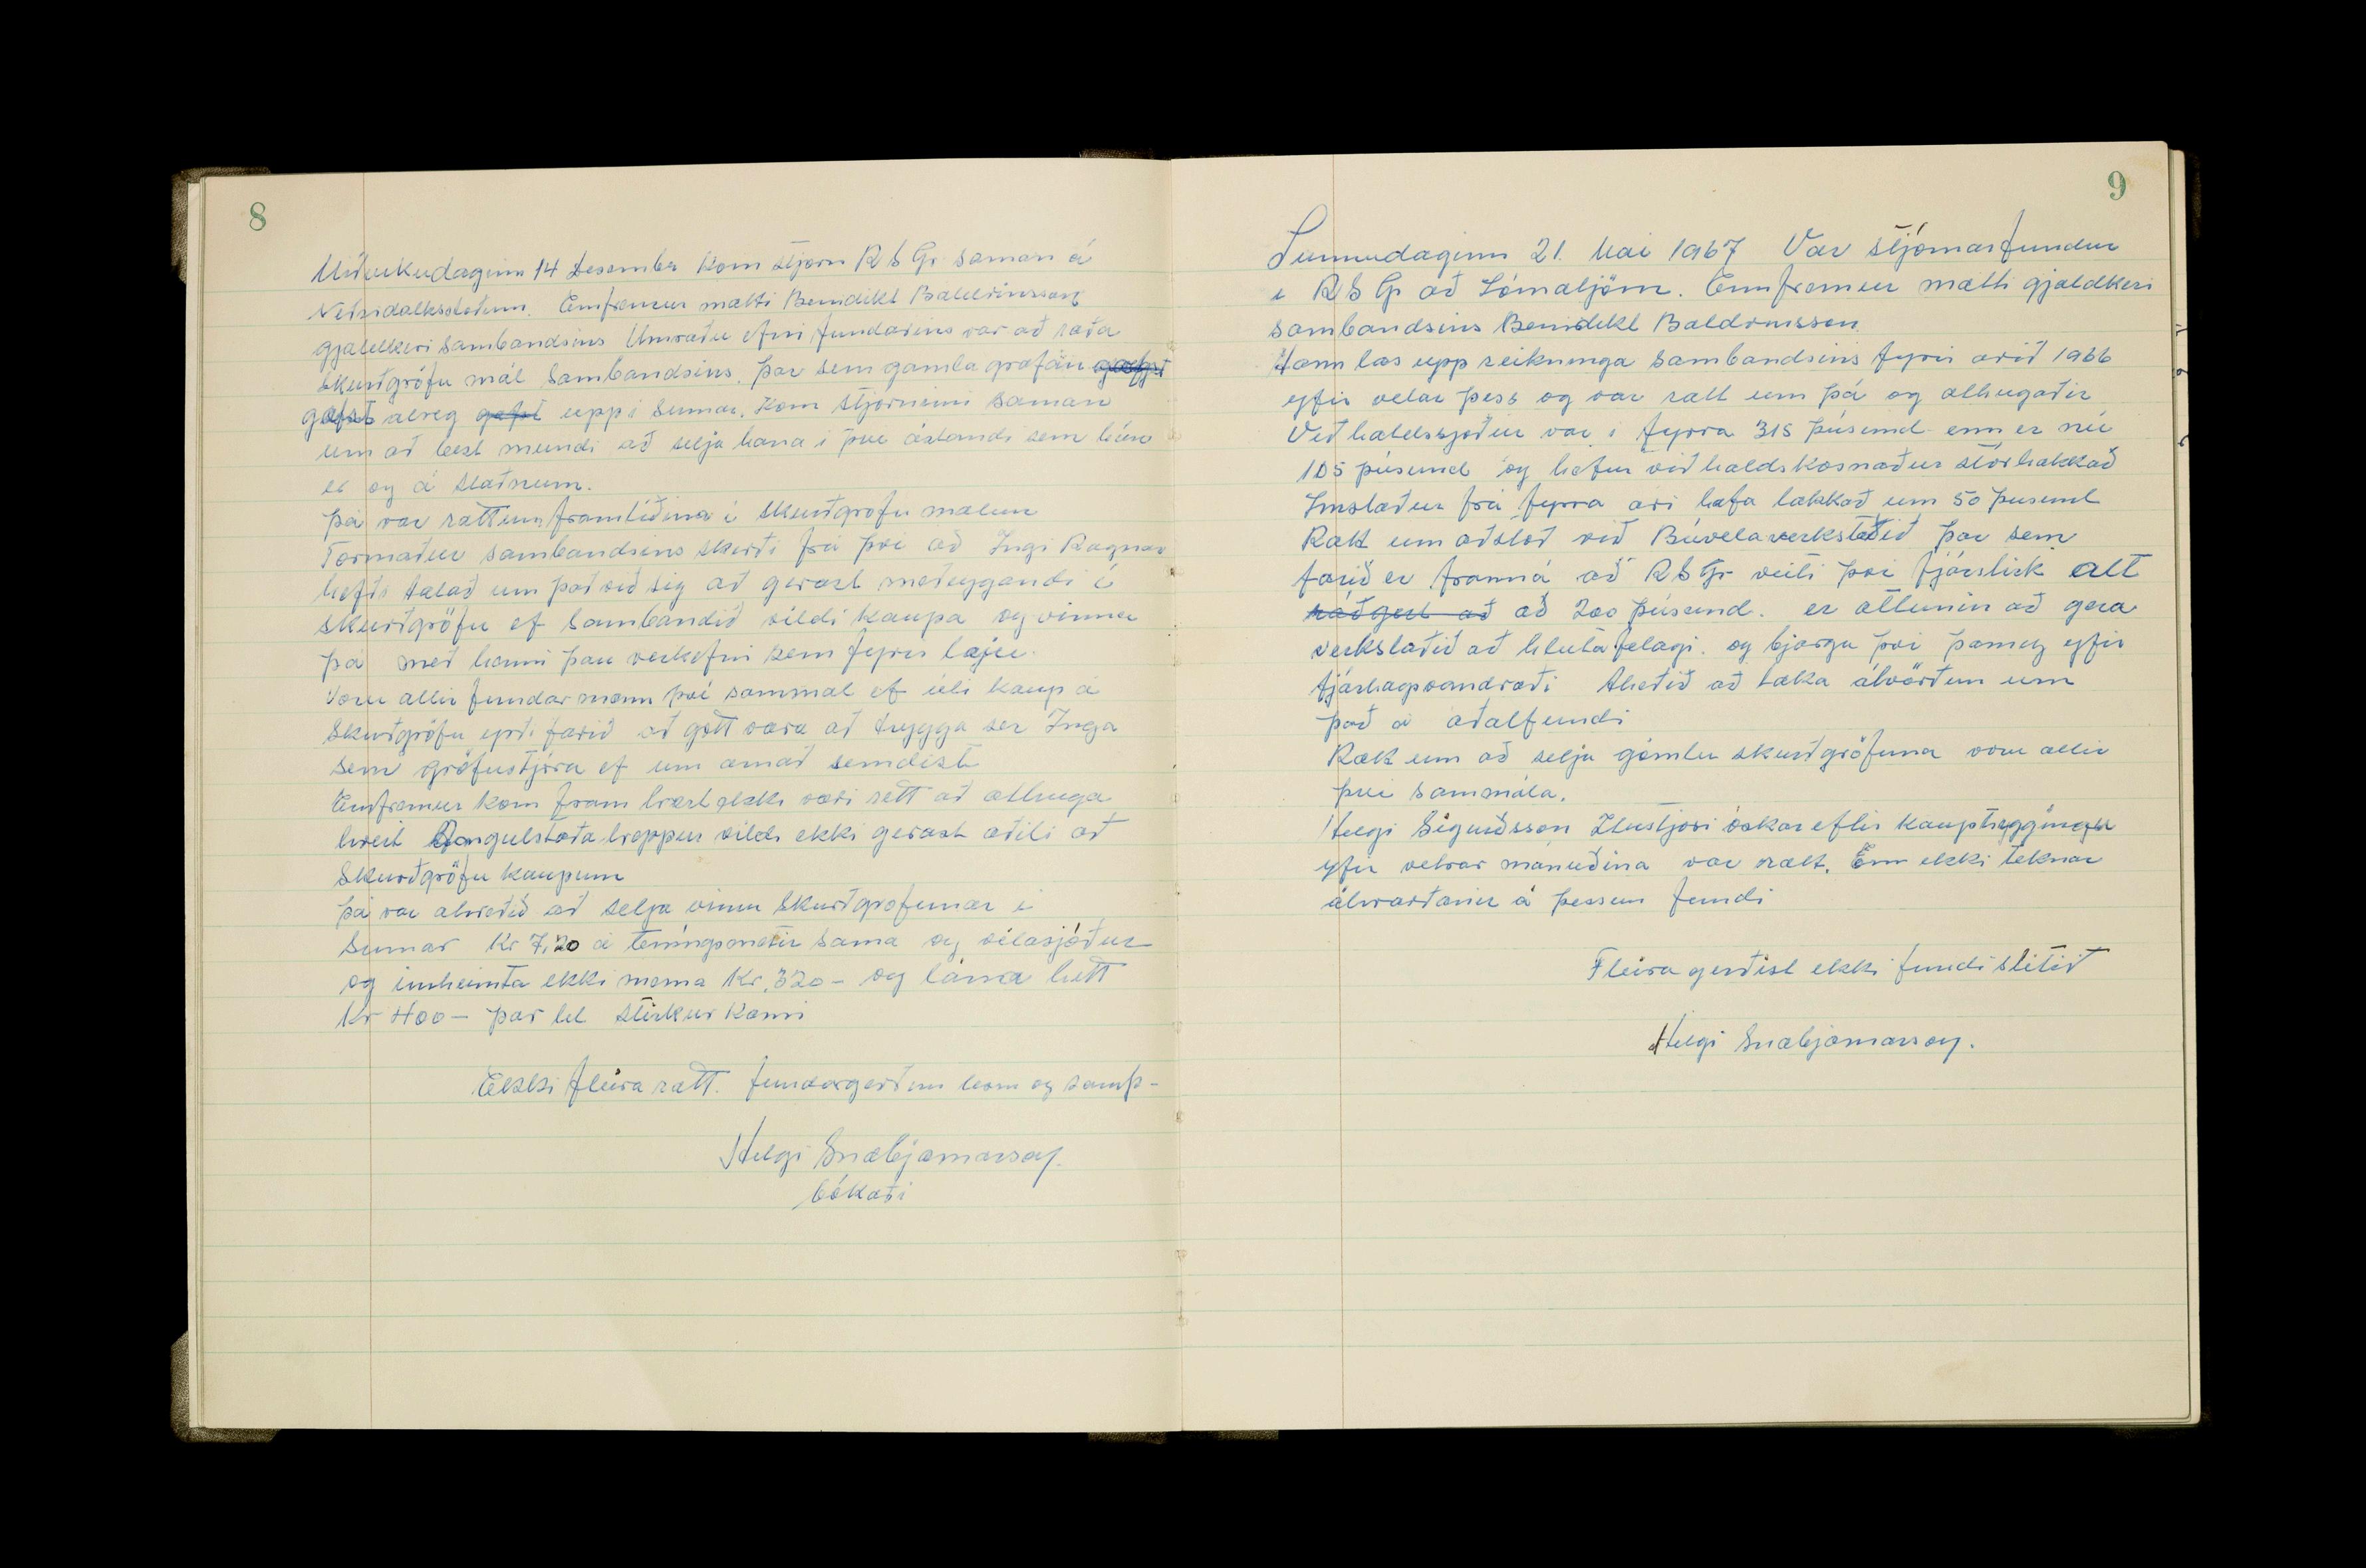 8
Miðvikudaginn 14 Desember kom stjórn R S Gr saman á
Neðridalksstöðum. Ennfremur mætti Benidikt Baldvinsson
gjaldkeri sambandsins Umræðu efni fundarins var að ræða
skurðgröfu mál Sambandsins. þar sem gamla grafan
gafst alveg gafst upp i sumar. Kom stjórninni saman
um að best mundi að selja hana i þvi ástandi sem hún
er og á staðnum.
þá var rætt um framtíðina i skurðgröfu málum
Formaður sambandsins skírði frá þvi að Ingi Ragnar
hefði talað um það við sig að gerast meðeygandi i
skurðgröfu ef Sambandið vildi kaupa og vinna
þá með henni þau verkefni sem fyrir lægju.
Voru allir fundarmenn þvi sammál ef úti kaup á
Skurðgröfu yrði farið að gott væra að tryggja ser Inga
sem gröfustjóra ef um annað semdist
Ennfremur kom fram hvort ekki væri rett að athuga
hvort Öngulstaða hreppur vildi ekki gerast aðili að
Skurðgröfu kaupum
þá var ahveðið að selja vinnu Skurðgröfunar i
Sumar Kr 7,20 á teningsmetir sama og vélasjóður
og innheimta ekki mema Kr. 320- og lána hitt
Kr 400- þar til stirkur kæmi
Ekki fleira rætt. fundargerðinn lesin og samþ-
Helgi Snæbjarnarson
bókaði
9
Sunnudaginn 21. Mai 1967 Var stjórnarfundur
i R S Gr að Jómatjörn. Ennfremur mætti gjaldkeri
sambandsins Benidikt Baldvinsson.
Hann las upp reikninga sambandsins fyrir arið 1966
yfir velar þess og var rætt um þá og athugaðir
Viðhaldssjóður var i fyrra 315 þúsund enn er nú
105 þúsund og hefur viðhaldskosnaður stórhækkað
Innstæður frá fyrra ári hafa lækkað um 50 þúsund
Rætt um aðstoð við Búvelaverkstæðið þar sem
farið er framá að R S Gr veiti þvi fjárstirk allt
ráðgert að að 200 þúsund. er ætlunin að gera
verkstæðið að hlutafelagi. og bjarga þvi þannig yfir
fjárhagsvandræði Ahveðið að taka ákvörðun um
það á aðalfundi
Rætt um að selja gömlu skurðgröfuna voru allir
þvi sammála.
Helgi Sigurðsson Ítustjori óskar eftir kauptryggingu
yfir vetrar mánuðina var rætt. Enn ekki teknar
ákvarðanir á þessum fundi
Fleira gerðist ekki fundi slitið
Helgi Snæbjarnarson.